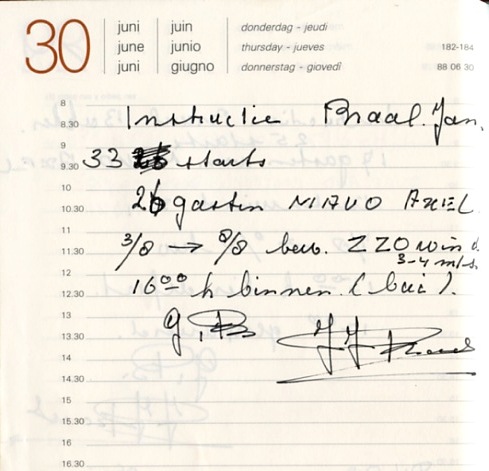 30
juni | juin | donderdag - jeudi
june | junio | thursday - jueves 182-184
juni | giugno | donnerstag - giovedî 88 06 30
8
8.30 Instructie Braal. Jan.
9
9.30 33 starts
10
10.30 26 gasten MAVO AXEL.
11
11.30 3/8 → 8/8 bew. ZZO wind.
3-4 m/s.
12
12.30 16⁰⁰ h binnen. (bui).
13
13.30
14
14.30
15
15.30
16
16.30